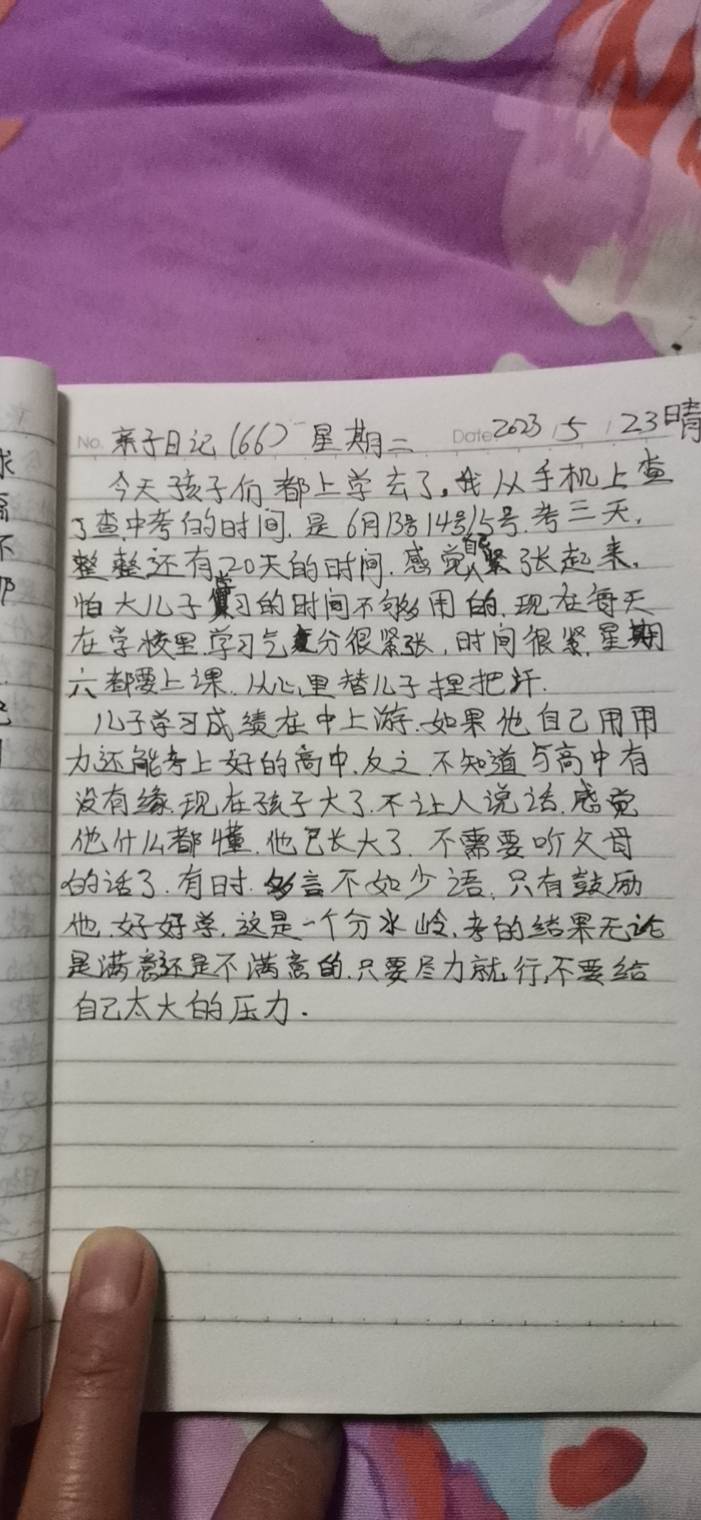 No. 亲子日记(66) 星期二 Date 2023 5 23晴
今天孩子们都上学去了,我从手机上查
了查中考的时间,是6月13号14号15号.考三天,
整整还有20天的时间.感觉紧张起来,
怕大儿子学习的时间不够用的,现在每天
在学校里,学习气氛分很紧张,时间很紧,星期
六都要上课.从心里替儿子捏把汗.
儿子学习成绩在中上游.如果他自己用用
力还能考上好的高中,反之,不知道与高中有
没有缘,现在孩子大了,不让人说话,感觉
他什么都懂,他已长大了,不需要听父母
的话了,有时,多言不如少语,只有鼓励
他,好好学,这是一个分水岭,考的结果无论
是满意还是不满意的,只要尽力就行,不要给
自己太大的压力.